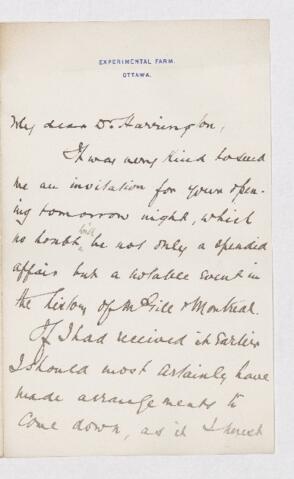 EXPERIMENTAL FARM.
OTTAWA.
My dear Dr. Harrington,
It was very kind to send
me an invitation for your open-
ing tomorrow night, which
no doubt will be not only a splendid
affair but a notable event in
the history of McGill & Montreal.
If I had received it earlier
I should most certainly have
made arrangements to
come down, as it